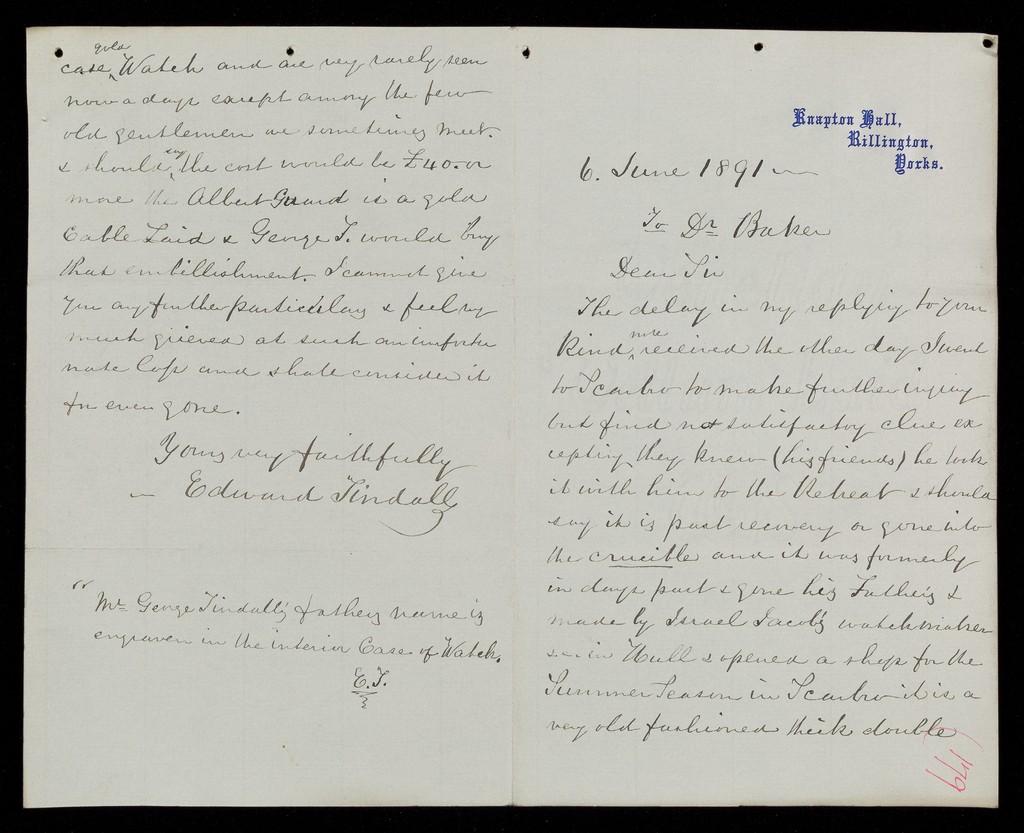 Knapton Hall,
Rillington,
Yorks.
6. June 1891
To Dr Baker
Dear Sir
The delay in my replying to your
kind note received the other day I went
to Scarbro to make further inquiry
but find not satisfactory clue ex
cepting they knew (his friends) he took
it with him to the Retreat & should
say it is past recovery or gone into
the crucible and it was formerly
in days past & gone his Father's &
made by Israel Jacobs watchmaker
in Hull & opened a shop for the
Summer Season in Scarbro it is a
very old fashioned thick double
(179
case gold Watch and are very rarely seen
now a days except among the few
old gentlemen we sometimes meet.
& should say the cost would be £40. or
more the Albert Guard is a gold
Cable Laid & George T. would buy
that embillishment. I cannot give
you any further particulars & feel very
much grieved at such an unfortu
nate loss and shall consider it
for ever gone.
Yours very faithfully
Edward Tindall
" Mr George Tindall's fathers name is
engraven in the interior Case of Watch.
E.T.